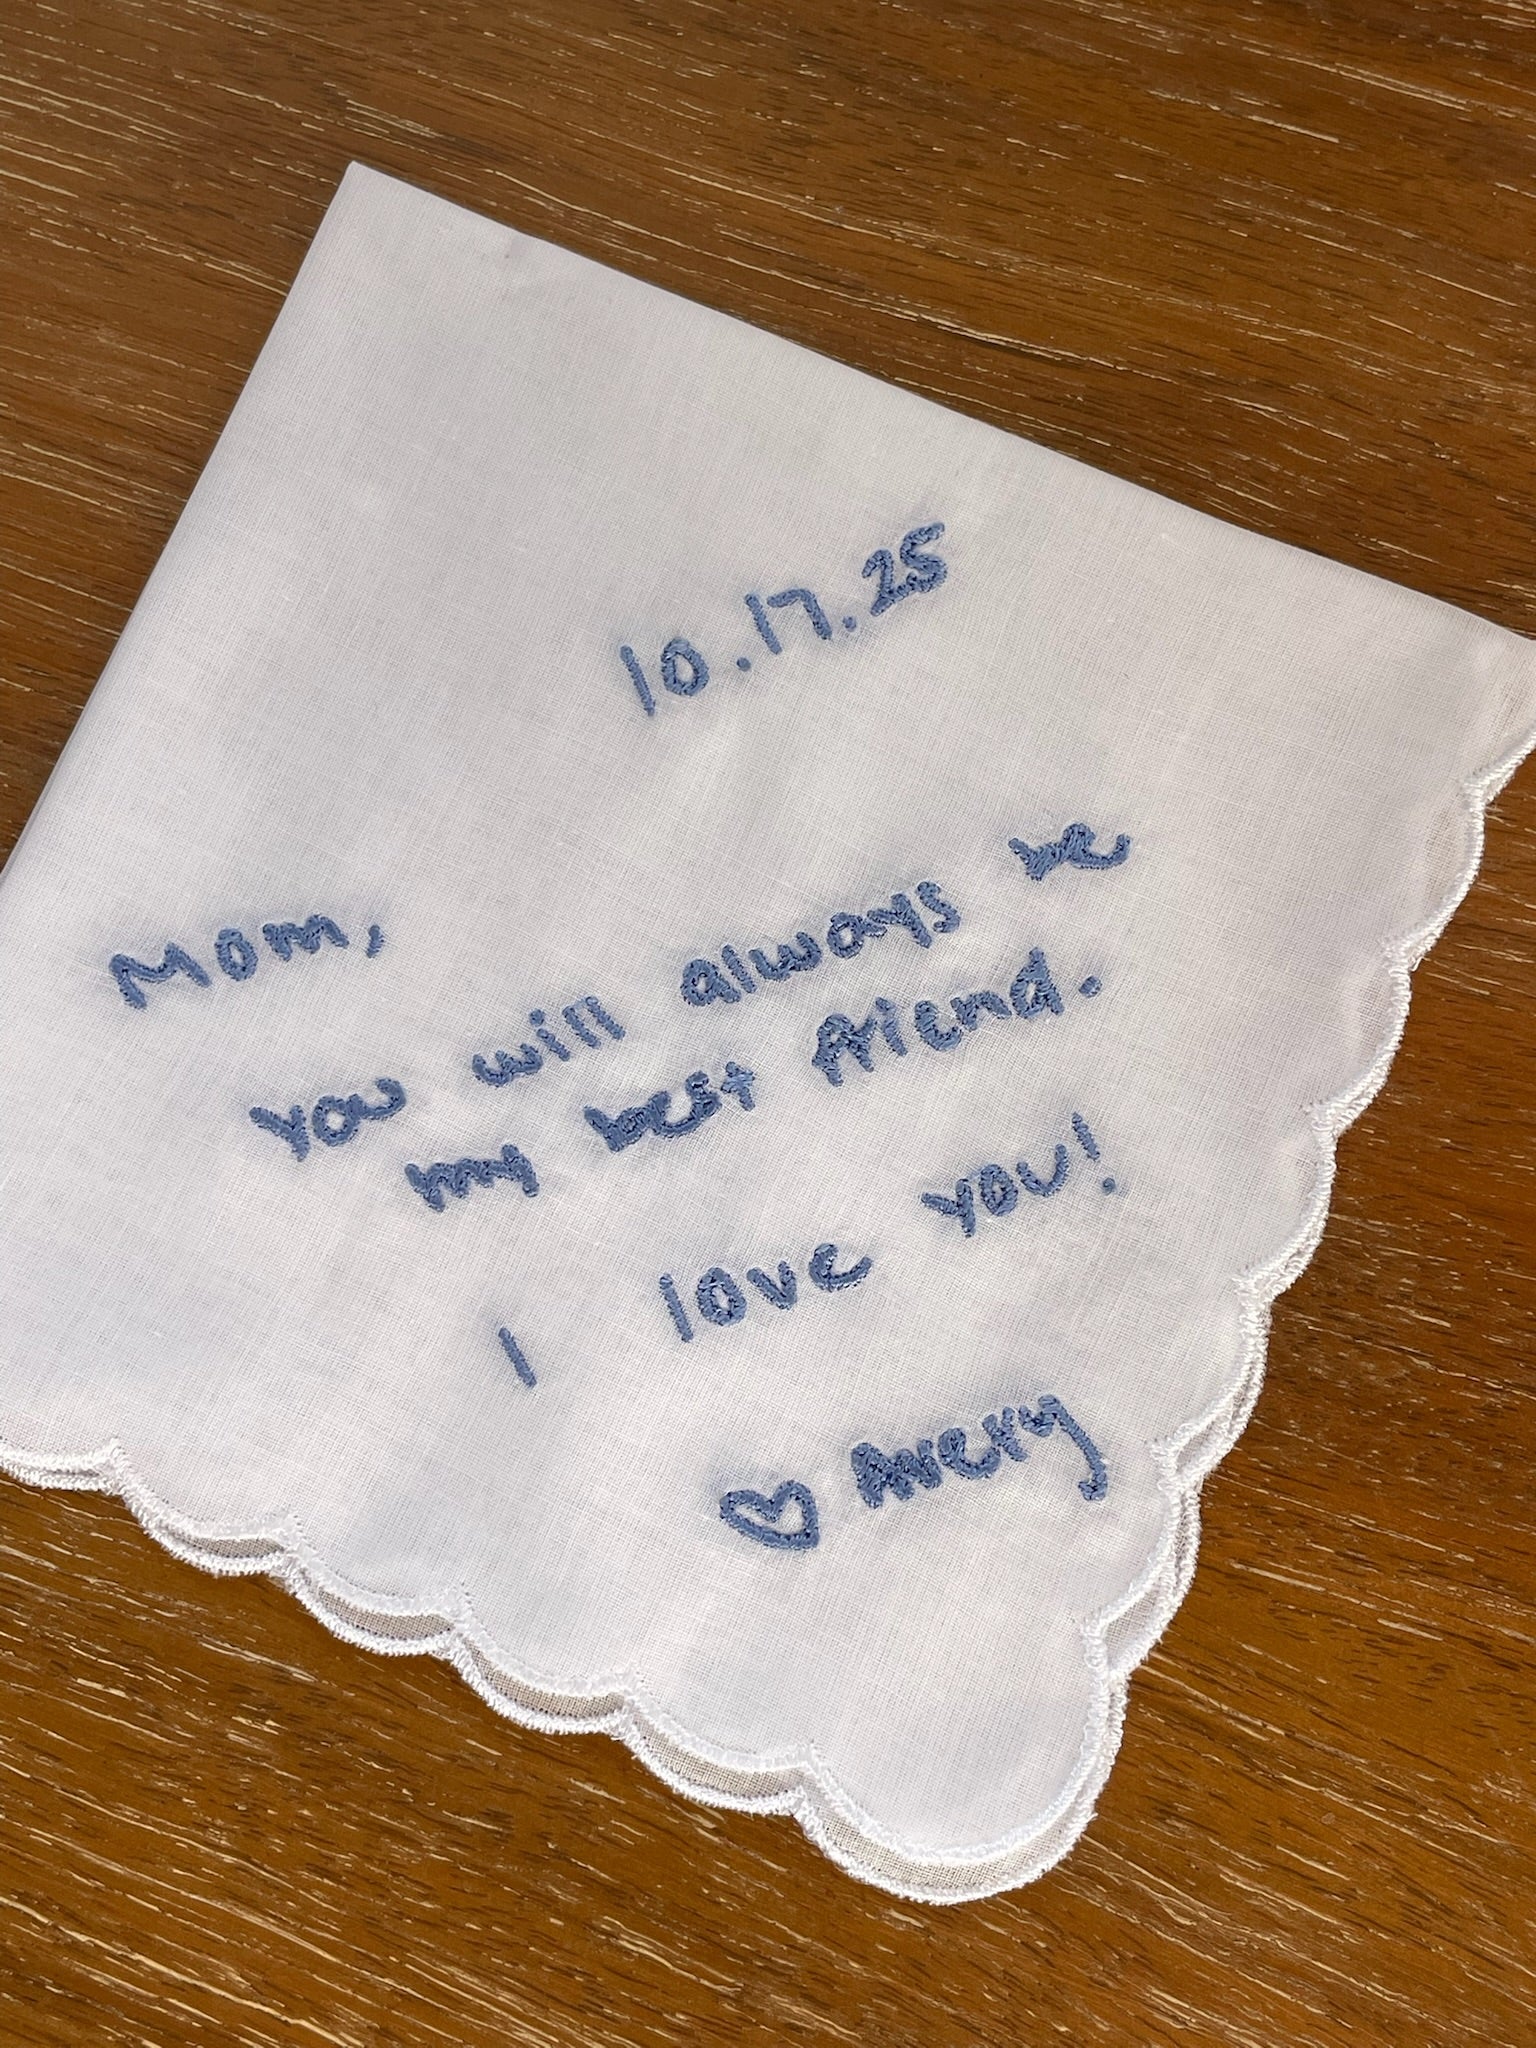 10.17.25
Mom,
you will always be
my best friend.
I love you!
♡ Avery